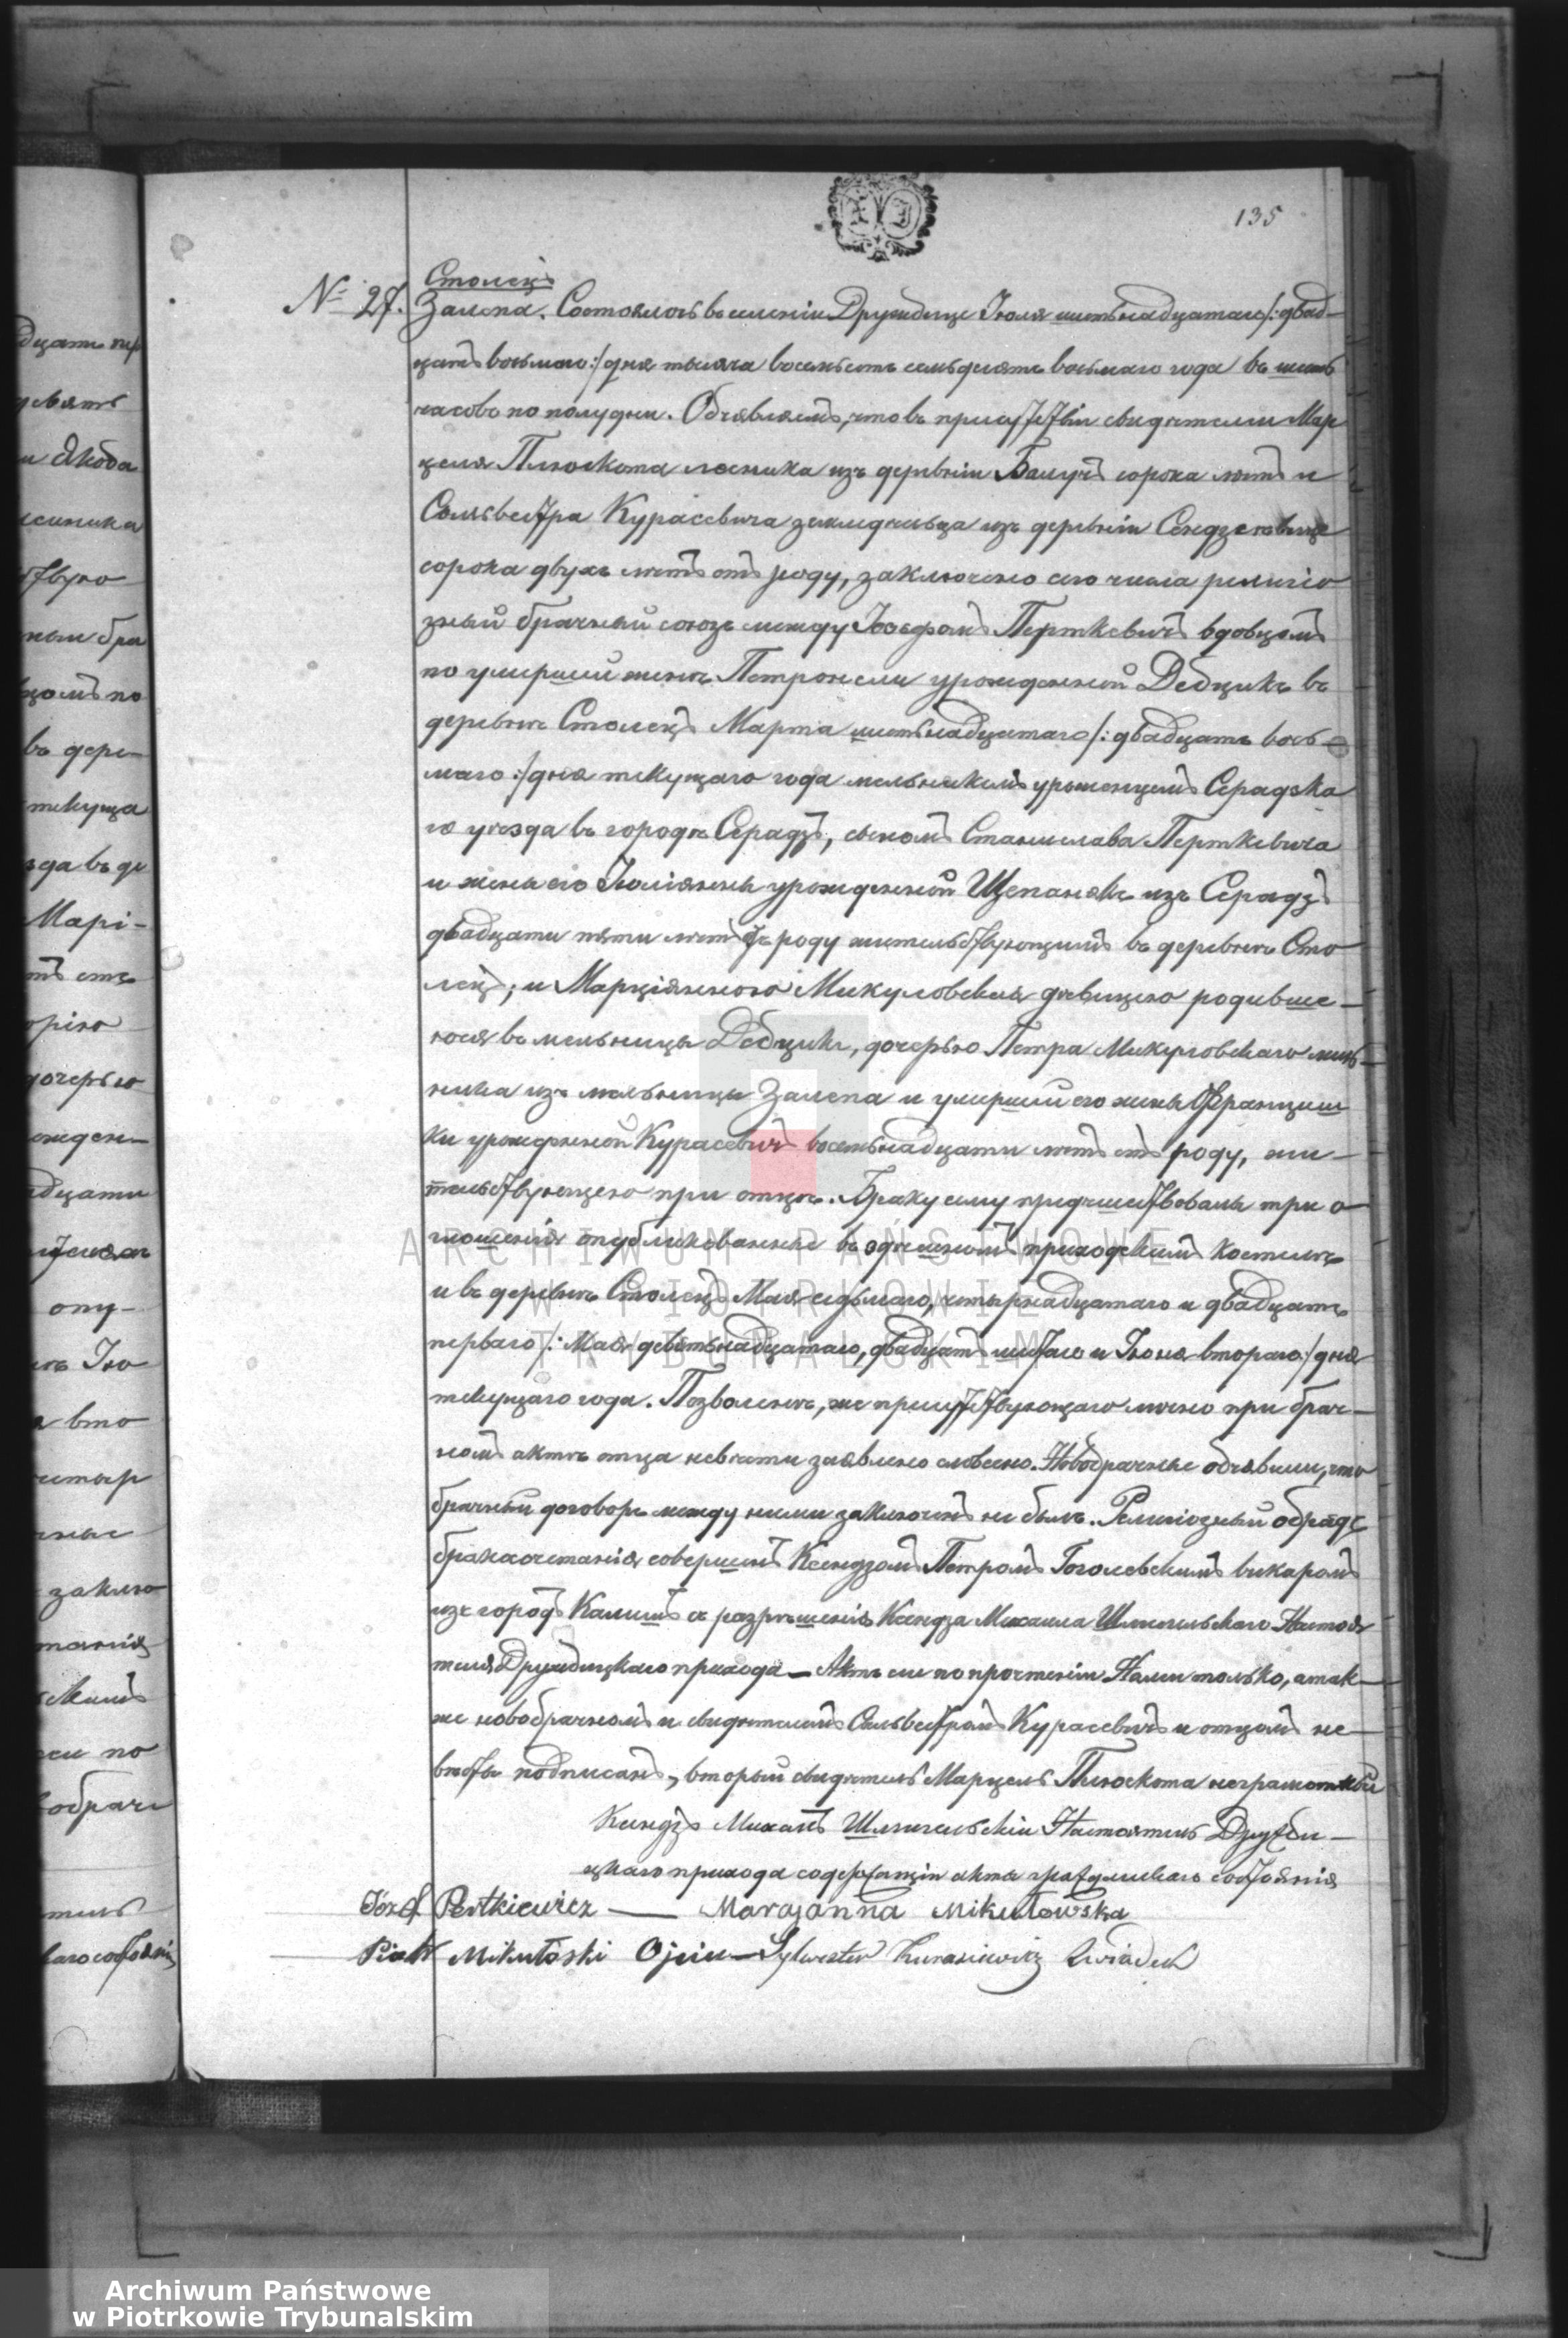 135
Столецъ
№ 27. Залепа. Состоялось въ селеніи Дружбице Іюля шестьнадцатаго /: двад-
цать восьмаго :/ дня тысяча восемьсотъ семьдесятъ восьмаго года въ шесть
часовъ по полудни. Объявляемъ, что въ присутствіи свидѣтели Мар
целя Плюскота лесника изъ деревніи Балучъ сорока летъ и
Сильвестра Курасевича земледѣльца изъ деревніи Сендзеевице
сорока двухъ летъ отъ роду, заключено сего числа религіо
зный брачный союзъ между Іосѣфомъ Перткевичъ вдовцомъ
по умершей женѣ Петронели урожденной Дебцикъ въ
деревнѣ Столецъ Марта шестьнадцатаго /: двадцать вось-
маго :/ дня текущаго года мельникомъ уроженцемъ Серадзка
го уѣзда въ городѣ Серадзъ, сыномъ Станислава Перткевича
и жены его Юліянны урожденной Щепанякъ изъ Серадзъ
двадцати пяти летъ отъ роду жительствующимъ въ деревнѣ Сто
лецъ; и Марціянною Микуловская дѣвицею родивше-
юся въ мельницы Дебцикъ, дочерью Петра Микуловскаго мель-
ника изъ мельницы Залепа и умершей его жены Францишк
ки урожденной Курасевичъ восемьнадцати летъ отъ роду, жи-
тельствующею при отцѣ. Браку сему предшествовали три о-
глошенія опубликованные въ здѣшномъ приходскимъ костелѣ
и въ деревнѣ Столецъ Мая седьмаго, четырнадцатаго и двадцать
перваго /: Мая девятьнадцатаго, двадцать шестаго и Іюня втораго :/ дня
текущаго года. Позволеніе, же присутствующаго лично при брач-
номъ актѣ отца невѣсти заявлено словесно. Новобрачные объявили, что
брачный договоръ между ними заключенъ не былъ. Религіозный обрядъ
бракосочетанія совершилъ Ксендзомъ Петромъ Гоголевскимъ викаромъ
изъ городъ Калишъ съ разрѣшенія Ксендза Михаила Шмигельскаго Настоя
теля Дружбицкаго прихода - Актъ сей по прочтеніи Нами только, а так-
же новобрачномъ и свидѣтелимъ Сильвестромъ Курасевичъ и отцомъ не-
вѣсты подписанъ, вторый свидѣтель Марцель Плюскота неграмотный
Ксендзъ Михалъ Шмигельскій Настоятель Дружби-
цкаго прихода содержащій акты гражданскаго состоянія
Józef Pertkiewicz — Marąjanna Mikułowska
Piotr Mikułoski Ojciec - Sylwester Kurasiewicz Swiadek
ARCHIWUM PAŃSTWOWE
W PIOTRKOWIE
TRYBUNALSKIM
Archiwum Państwowe
w Piotrkowie Trybunalskim